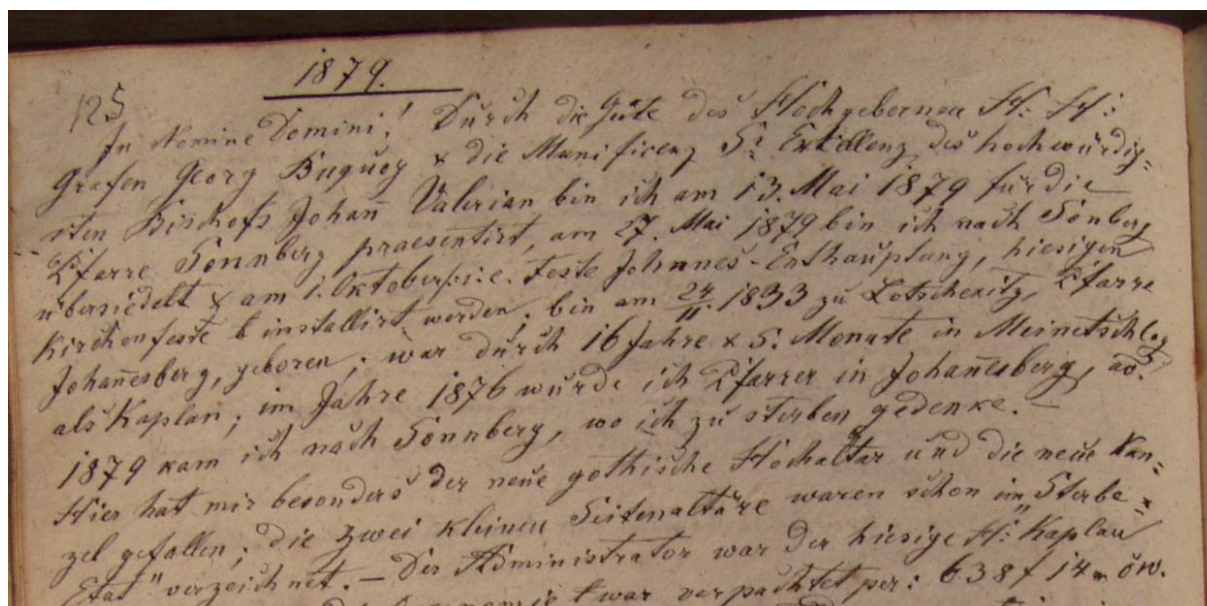 1879.
125
In Nomine Domini! Durch die Güte des Hochgebornen H: H:
Grafen Georg Buquoy & die Munificenz Sr Exellenz des hochwürdig=
sten Bischofs Johan̄ Valerian bin ich am 13. Mai 1879 für die
Pfarre Sonnberg praesentirt, am 27. Mai 1879 bin ich nach Sonberg
übersiedelt & am 1. Oktober i. e. Feste Johannes-Enthauptung, hiesigen
Kirchenfeste installirt worden; bin am 24/11. 1833 zu Lotschenitz, Pfarre
Johan̄esberg, geboren; war durch 16 Jahre & 5. Monate in Meinetschlag
als Kaplan; im Jahre 1876 wurde ich Pfarrer in Johan̄esberg, ao.
1879 kam ich nach Sonnberg, wo ich zu sterben gedenke. —
Hier hat mir besonders der neue gothische Hochaltar und die neue Kan=
zel gefallen; die zwei kleinen Seitenaltäre waren schon im „Sterbe
Etat" verzeichnet. — Der Administrator war der hiesige H: Kaplan
war verpachtet per: 638 f 14 öw.